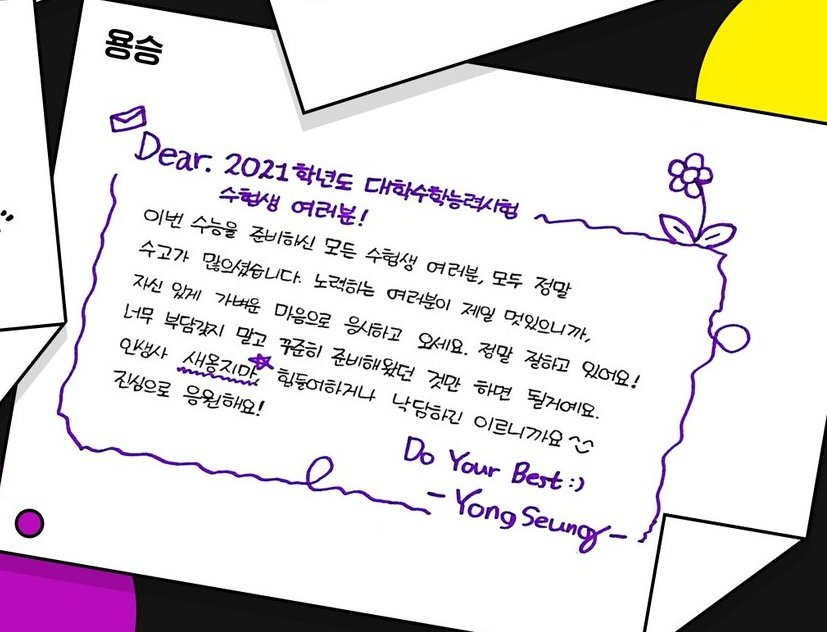 용승
Dear. 2021학년도 대학수학능력시험
수험생 여러분!
이번 수능을 준비하신 모든 수험생 여러분, 모두 정말
수고가 많으셨습니다. 노력하는 여러분이 제일 멋있으니까,
자신 있게 가벼운 마음으로 응시하고 오세요. 정말 잘하고 있어요!
너무 부담갖지 말고 꾸준히 준비해왔던 것만 하면 될거예요.
인생사 새옹지마, 힘들어하거나 낙담하긴 이르니까요
진심으로 응원해요!
Do Your Best :)
- Yong Seung -